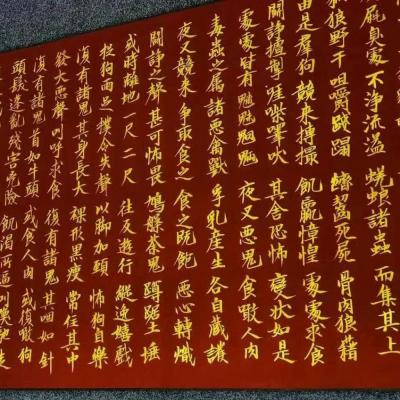 尿臭處不淨流溢 蜣蜋諸蟲 而集其上
狐狼野干 咀嚼踐蹋 嚌齧死屍 骨肉狼藉
由是羣狗 競來搏撮 飢羸慞惶 處處求食
鬪諍摣掣 啀喍嘷吠 其舍恐怖 變狀如是
處處皆有 魑魅魍魎 夜叉惡鬼 食噉人肉
毒蟲之屬 諸惡禽獸 孚乳產生 各自藏護
夜叉競來 爭取食之 食之既飽 惡心轉熾
鬪諍之聲 甚可怖畏 鳩槃荼鬼 蹲踞土埵
或時離地 一尺二尺 往反遊行 縱逸嬉戲
捉狗兩足 撲令失聲 以脚加頸 怖狗自樂
復有諸鬼 其身長大 裸形黑瘦 常住其中
發大惡聲 叫呼求食 復有諸鬼 其咽如針
復有諸鬼 首如牛頭 或食人肉 或復噉狗
頭髮蓬亂 殘害兇險 飢渴所逼 叫喚馳走